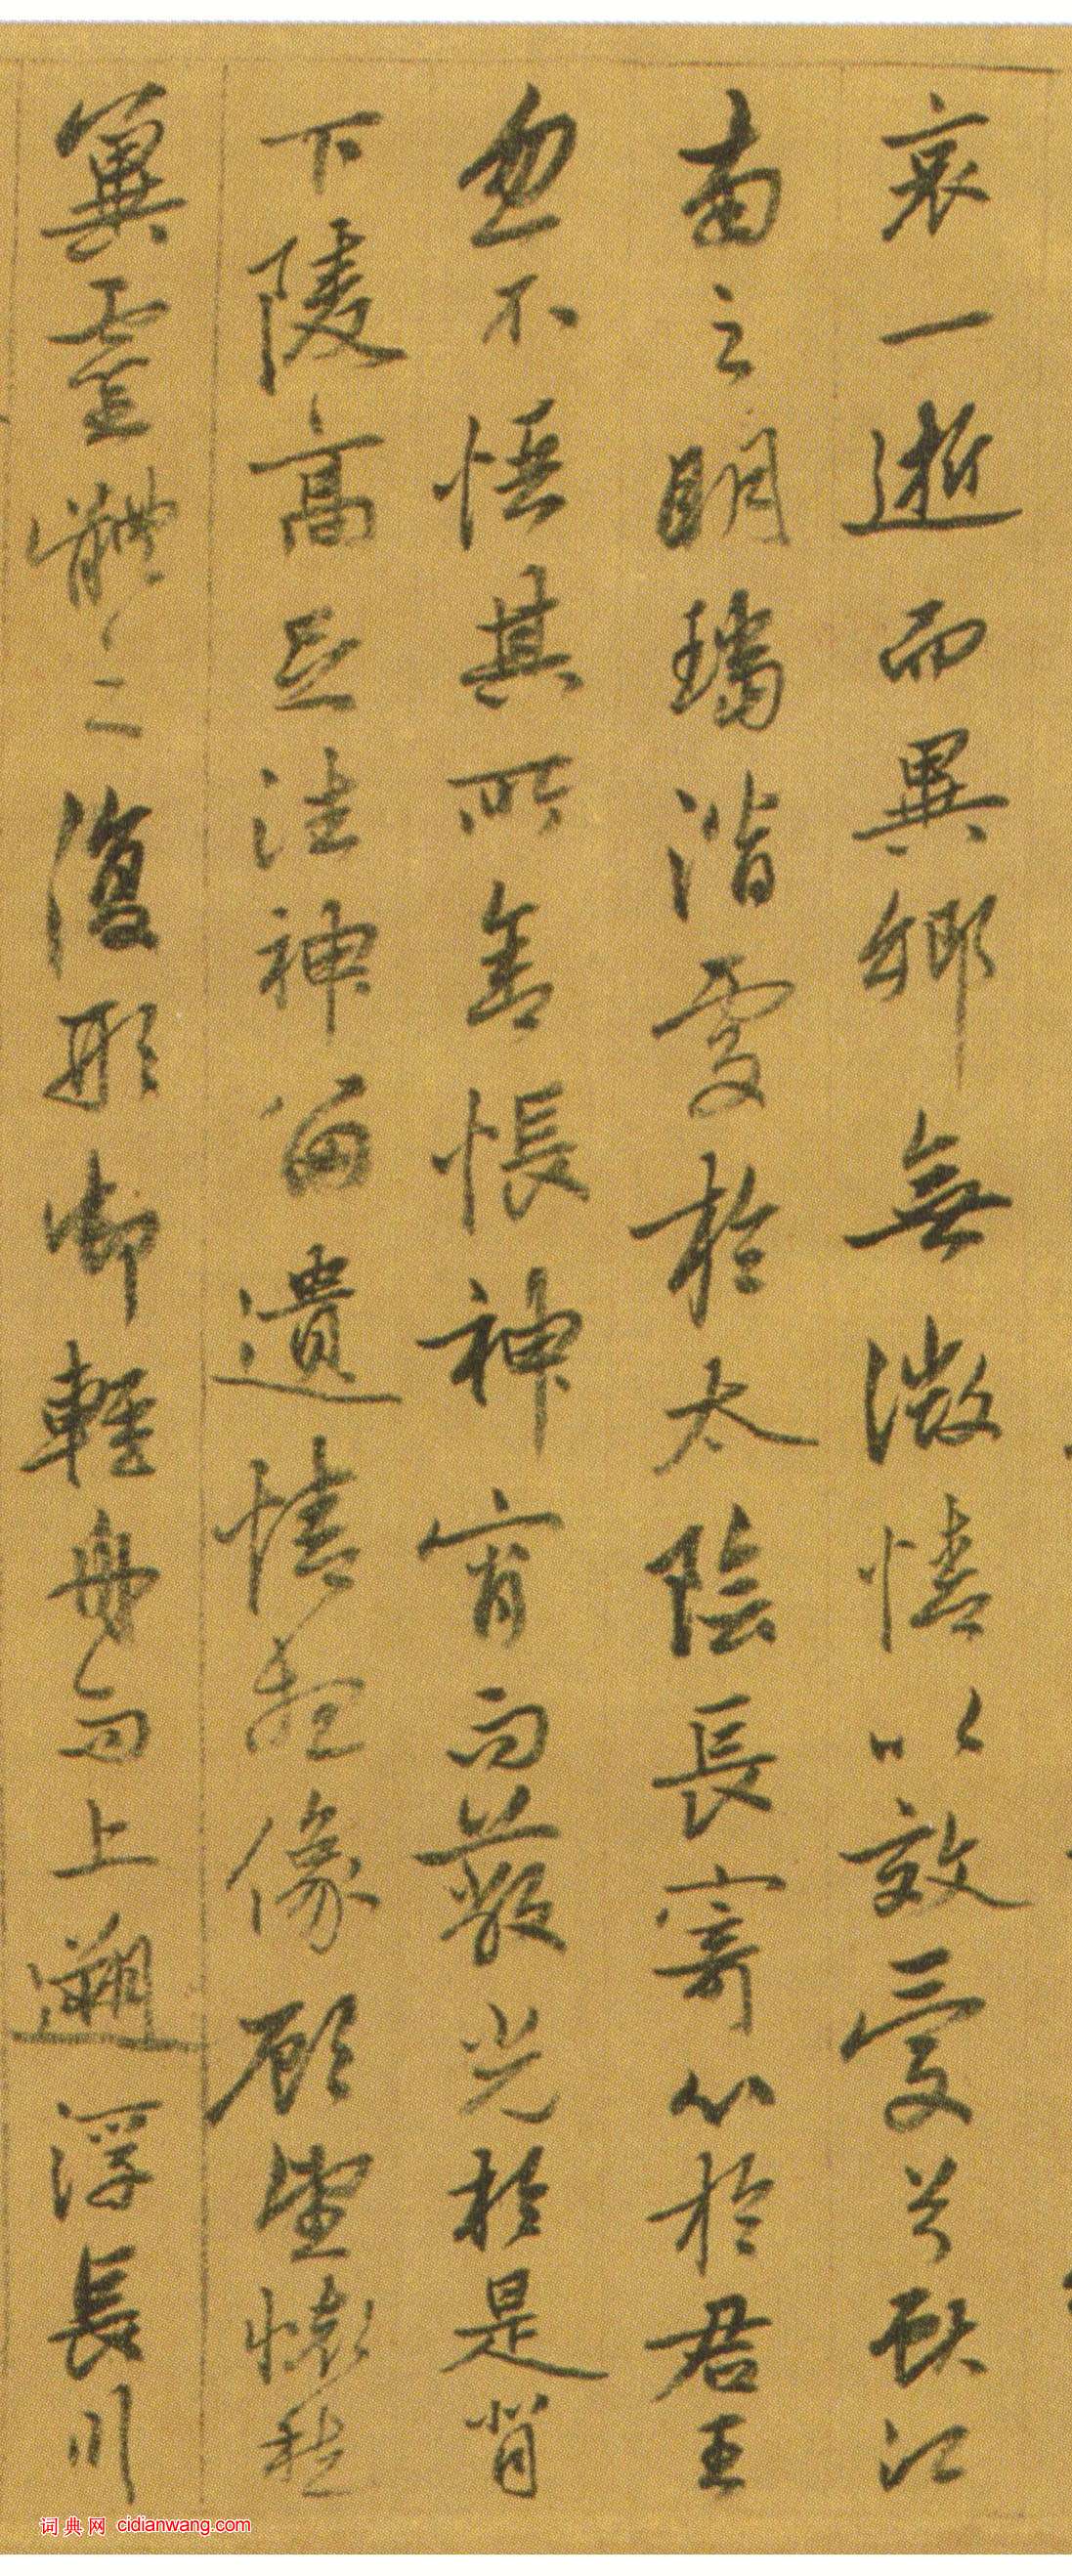 哀一逝而異鄉無微情以效愛兮献江
南之明璫潛處於太陰長寄心於君王
忽不悟其所舍悵神宵而蔽光於是背
下陵高足往神留遺情想像顧望懷愁
冀靈體之復形御輕舟而上遡浮長川
词典网 cidianwang.com